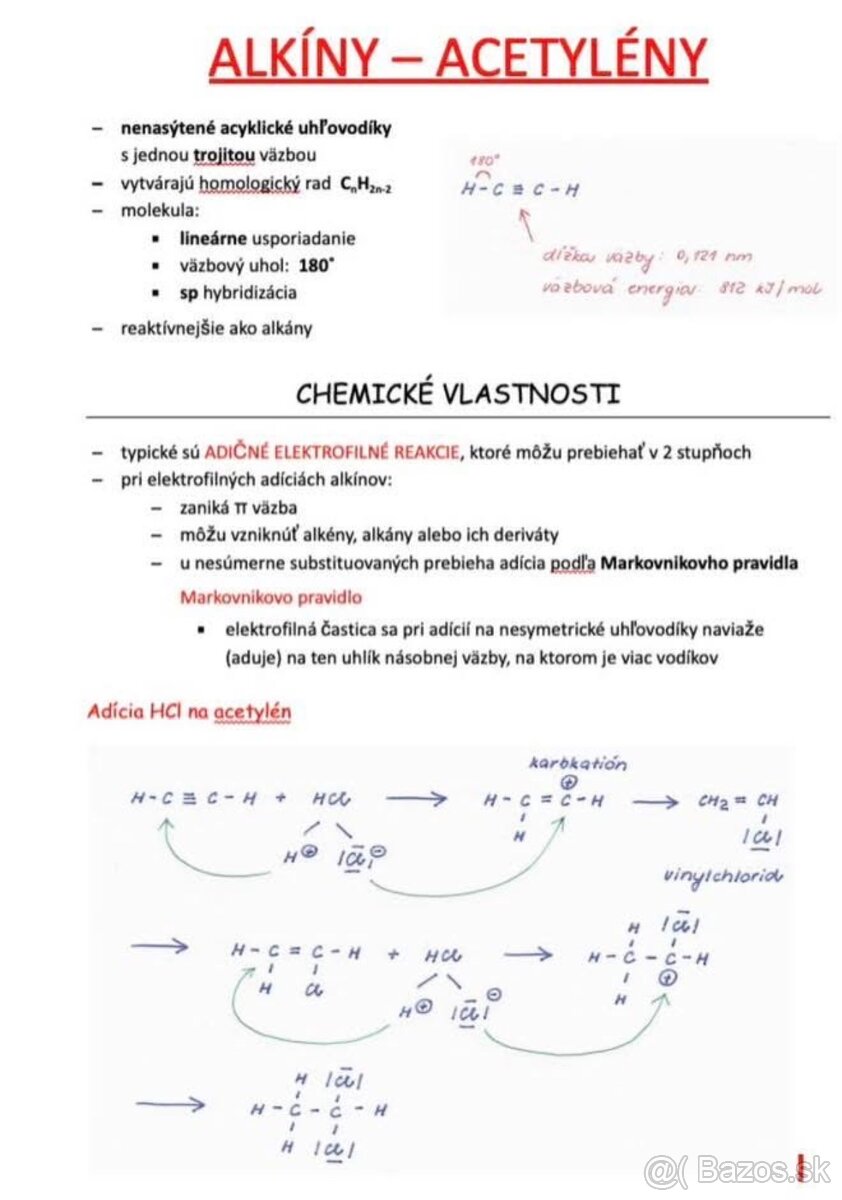 ALKÍNY – ACETYLÉNY
– nenasýtené acyklické uhľovodíky
s jednou trojitou väzbou
– vytvárajú homologický rad CnH2n-2
– molekula:
▪ lineárne usporiadanie
▪ väzbový uhol: 180°
▪ sp hybridizácia
– reaktívnejšie ako alkány
180°
H-C≡C-H
dĺžka väzby: 0,121 nm
väzbová energia: 812 kJ/mol
CHEMICKÉ VLASTNOSTI
– typické sú ADIČNÉ ELEKTROFILNÉ REAKCIE, ktoré môžu prebiehať v 2 stupňoch
– pri elektrofilných adíciách alkínov:
– zaniká π väzba
– môžu vzniknúť alkény, alkány alebo ich deriváty
– u nesúmerne substituovaných prebieha adícia podľa Markovnikovho pravidla
Markovnikovo pravidlo
▪ elektrofilná častica sa pri adícií na nesymetrické uhľovodíky naviaže
(aduje) na ten uhlík násobnej väzby, na ktorom je viac vodíkov
Adícia HCl na acetylén
karbkatión
⊕
H-C≡C-H + HCl → H-C=C-H → CH2=CH
H |Cl|
H⊕ |Cl|⊖
vinylchlorid
H |Cl|
→ H-C=C-H + HCl → H-C-C-H
H Cl H ⊕
H⊕ |Cl|⊖
H |Cl|
→ H-C-C-H
H |Cl|
@( Bazos.sk